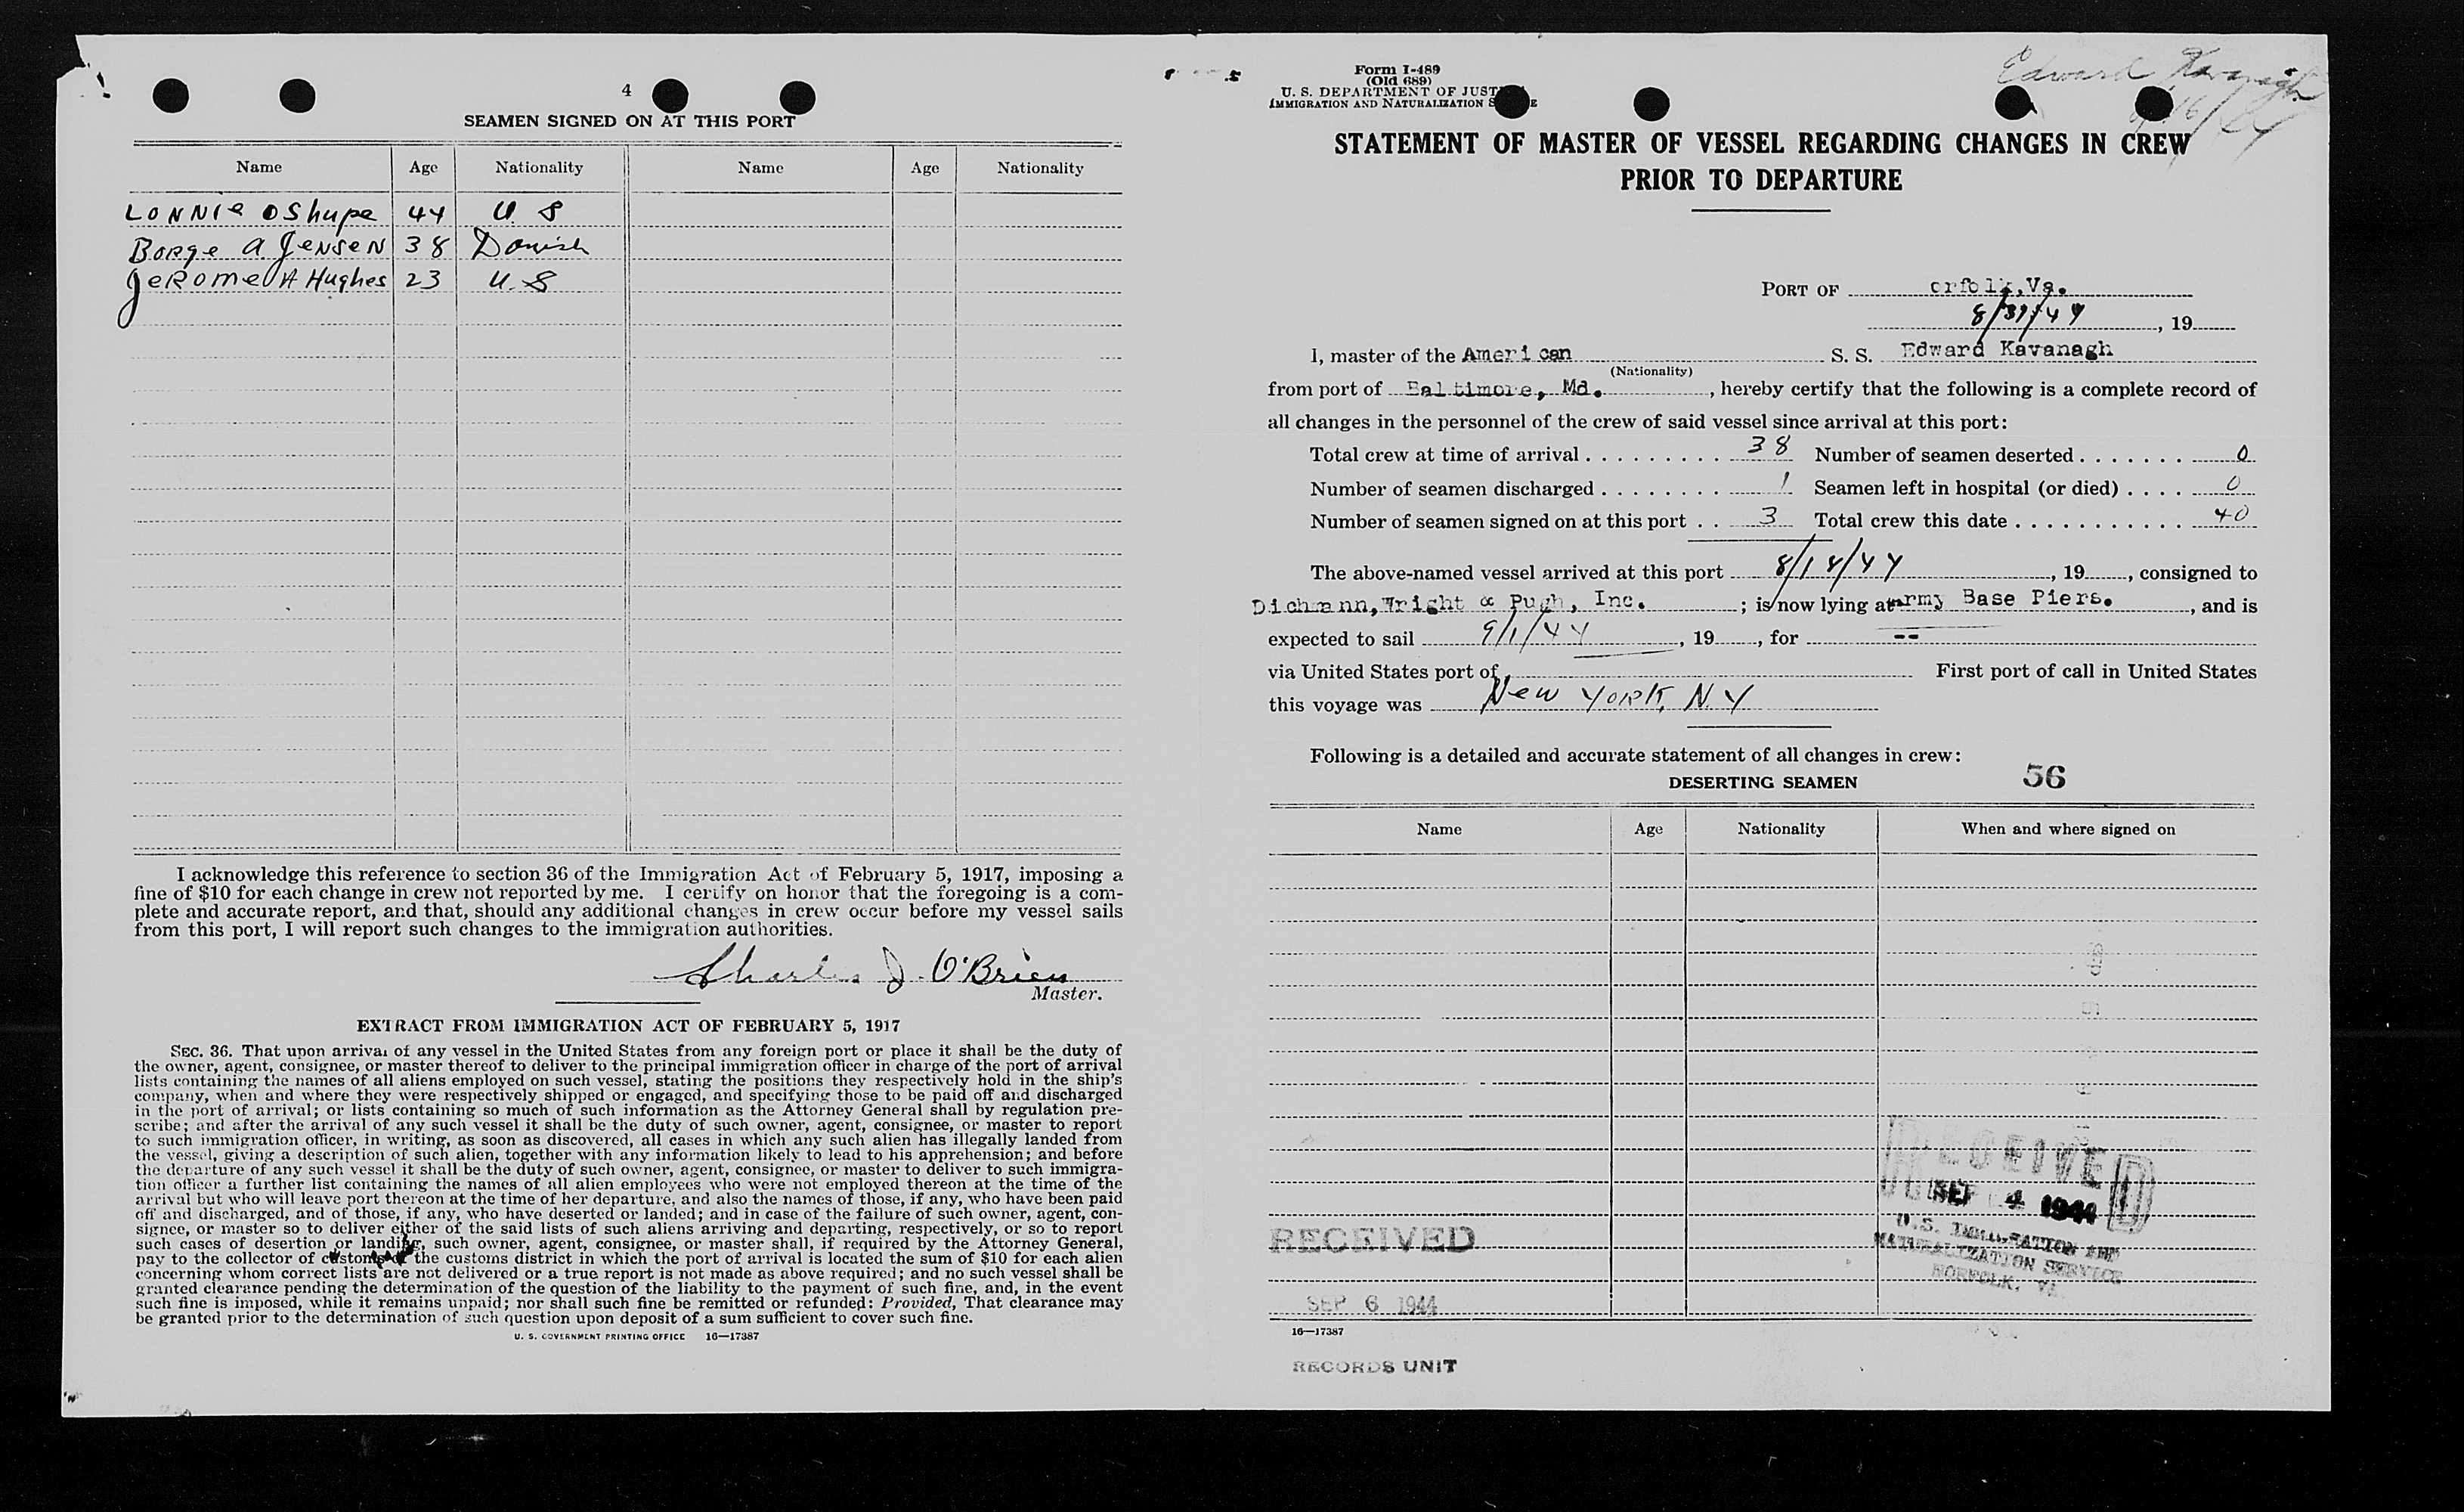 4
SEAMEN SIGNED ON AT THIS PORT
Name Age Nationality Name Age Nationality
LONNIe O Shupe 44 U. S
Borge A. JeNSeN 38 Danish
JeRome A Hughes 23 U. S
I acknowledge this reference to section 36 of the Immigration Act of February 5, 1917, imposing a
fine of $10 for each change in crew not reported by me. I certify on honor that the foregoing is a com-
plete and accurate report, and that, should any additional changes in crew occur before my vessel sails
from this port, I will report such changes to the immigration authorities.
Charles J. O'Brien
Master.
EXTRACT FROM IMMIGRATION ACT OF FEBRUARY 5, 1917
SEC. 36. That upon arrival of any vessel in the United States from any foreign port or place it shall be the duty of
the owner, agent, consignee, or master thereof to deliver to the principal immigration officer in charge of the port of arrival
lists containing the names of all aliens employed on such vessel, stating the positions they respectively hold in the ship's
company, when and where they were respectively shipped or engaged, and specifying those to be paid off and discharged
in the port of arrival; or lists containing so much of such information as the Attorney General shall by regulation pre-
scribe; and after the arrival of any such vessel it shall be the duty of such owner, agent, consignee, or master to report
to such immigration officer, in writing, as soon as discovered, all cases in which any such alien has illegally landed from
the vessel, giving a description of such alien, together with any information likely to lead to his apprehension; and before
the departure of any such vessel it shall be the duty of such owner, agent, consignee, or master to deliver to such immigra-
tion officer a further list containing the names of all alien employees who were not employed thereon at the time of the
arrival but who will leave port thereon at the time of her departure, and also the names of those, if any, who have been paid
off and discharged, and of those, if any, who have deserted or landed; and in case of the failure of such owner, agent, con-
signee, or master so to deliver either of the said lists of such aliens arriving and departing, respectively, or so to report
such cases of desertion or landing, such owner, agent, consignee, or master shall, if required by the Attorney General,
pay to the collector of customs of the customs district in which the port of arrival is located the sum of $10 for each alien
concerning whom correct lists are not delivered or a true report is not made as above required; and no such vessel shall be
granted clearance pending the determination of the question of the liability to the payment of such fine, and, in the event
such fine is imposed, while it remains unpaid; nor shall such fine be remitted or refunded: Provided, That clearance may
be granted prior to the determination of such question upon deposit of a sum sufficient to cover such fine.
U. S. GOVERNMENT PRINTING OFFICE 16—17387
Form I-489
(Old 689)
U. S. DEPARTMENT OF JUST
IMMIGRATION AND NATURALIZATION S E
Edward Kavanagh
STATEMENT OF MASTER OF VESSEL REGARDING CHANGES IN CREW
PRIOR TO DEPARTURE
PORT OF orfolk, Va.
8/31/44, 19
I, master of the American S. S. Edward Kavanagh
(Nationality)
from port of Baltimore, Md., hereby certify that the following is a complete record of
all changes in the personnel of the crew of said vessel since arrival at this port:
Total crew at time of arrival 38 Number of seamen deserted 0
Number of seamen discharged 1 Seamen left in hospital (or died) 0
Number of seamen signed on at this port 3 Total crew this date 40
The above-named vessel arrived at this port 8/18/44, 19, consigned to
Dichmann, Wright & Pugh, Inc.; is now lying at Army Base Piers., and is
expected to sail 9/1/44, 19, for --
via United States port of First port of call in United States
this voyage was New York, N.Y
Following is a detailed and accurate statement of all changes in crew:
DESERTING SEAMEN 56
Name Age Nationality When and where signed on
RECEIVED
SEP 4 1944
U.S. IMMIGRATION AND
NATURALIZATION SERVICE
NORFOLK, VA.
RECEIVED
SEP 6 1944
16—17387
RECORDS UNIT